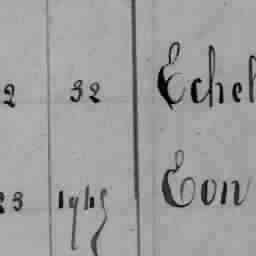 2 32 Echel
23 Eon